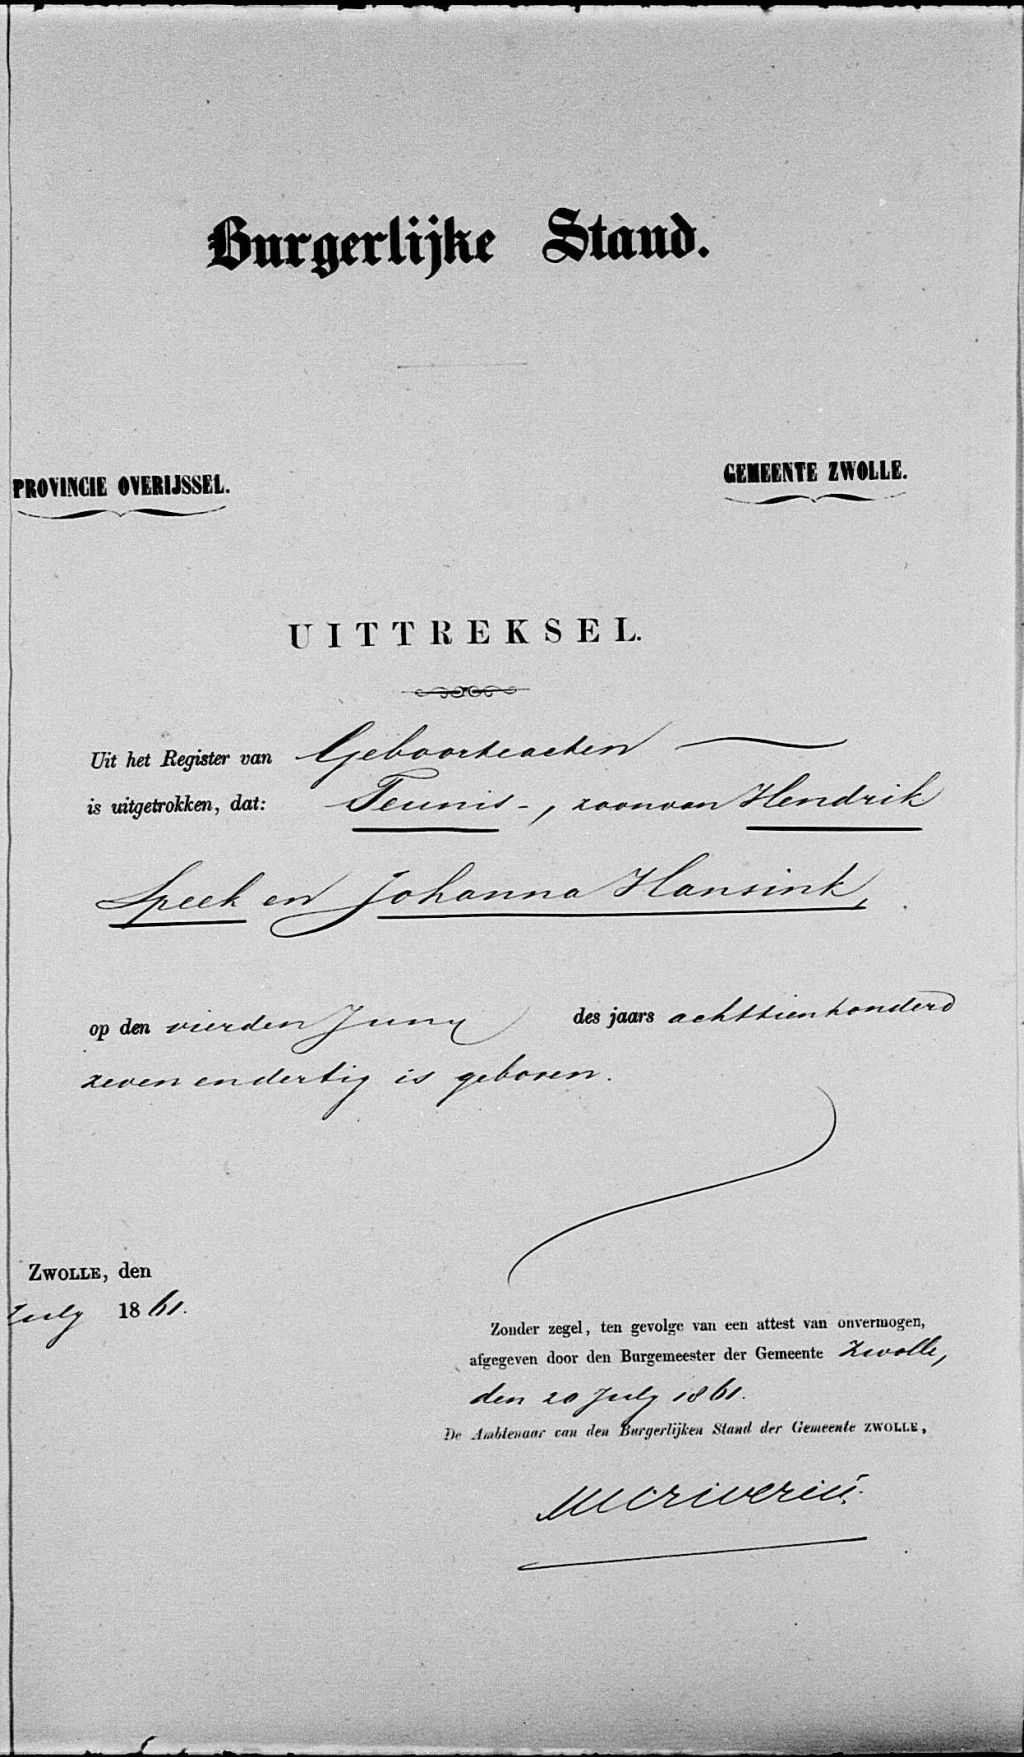 Burgerlijke Stand.
PROVINCIE OVERIJSSEL.
GEMEENTE ZWOLLE.
UITTREKSEL.
Uit het Register van Geboorteacten
is uitgetrokken, dat: Teunis -, zoon van Hendrik
Speek en Johanna Hansink,
op den vierden Juny des jaars achttienhonderd
zeven en dertig is geboren.
ZWOLLE, den
July 1861.
Zonder zegel, ten gevolge van een attest van onvermogen,
afgegeven door den Burgemeester der Gemeente Zwolle,
den 20 July 1861.
De Ambtenaar van den Burgerlijken Stand der Gemeente ZWOLLE,